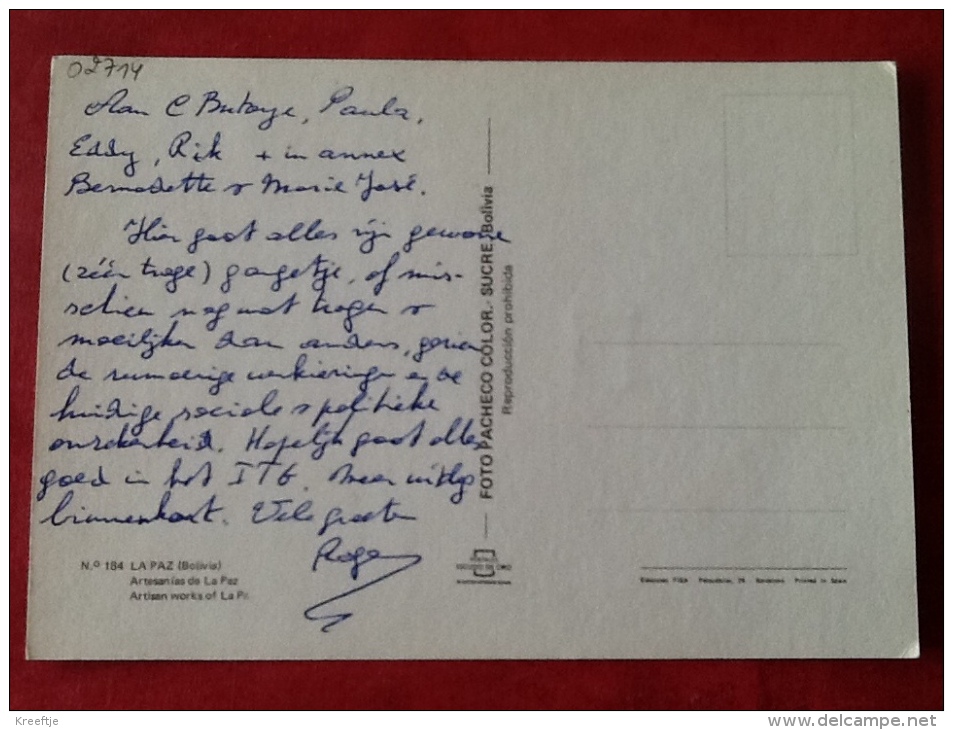 02714
Aan C Butaye, Paula,
Eddy, Rik + in annex
Bernadette & Marie José.
Hier gaat alles zijn gewone
(zéér trage) gangetje, of mis-
schien nog wat trager &
moeilijker dan anders, gezien
de rumoerige verkiezingen en de
huidige sociale & politieke
onzekerheid. Hopelijk gaat alles
goed in het ITG. Meer uitleg
binnenkort. Vele groeten
Roger
FOTO PACHECO COLOR.- SUCRE /Bolivia
Reproducción prohibida
N.º 184 LA PAZ (Bolivia)
Artesanías de La Paz
Artisan works of La Pa
ESCUDO DE ORO
Ediciones FISA Barcelona Printed in Spain
Kreeftje
www.delcampe.net